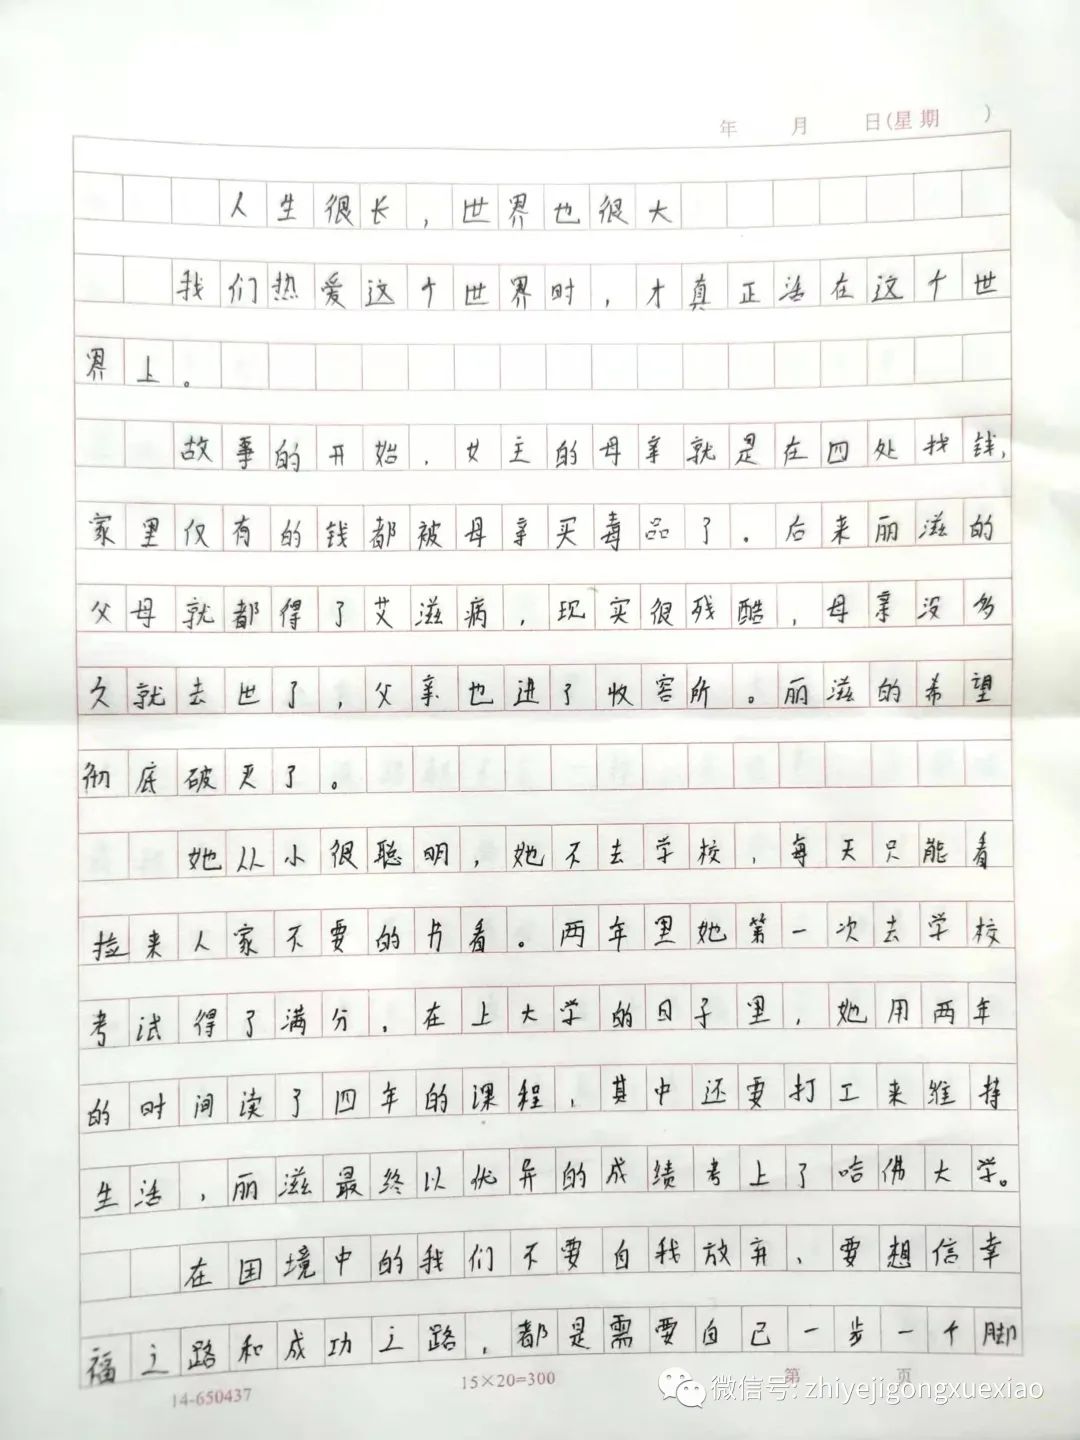 年 月 日(星期 )
人生很长，世界也很大
我们热爱这个世界时，才真正活在这个世
界上。
故事的开始，女主的母亲就是在四处找钱，
家里仅有的钱都被母亲买毒品了。后来丽滋的
父母就都得了艾滋病，现实很残酷，母亲没多
久就去世了，父亲也进了收容所。丽滋的希望
彻底破灭了。
她从小很聪明，她不去学校，每天只能看
捡来人家不要的书看。两年里她第一次去学校
考试得了满分，在上大学的日子里，她用两年
的时间读了四年的课程，其中还要打工来维持
生活，丽滋最终以优异的成绩考上了哈佛大学。
在困境中的我们不要自我放弃，要想信幸
福之路和成功之路，都是需要自己一步一个脚
14-650437 15×20=300 第 页
微信号: zhiyejigongxuexiao